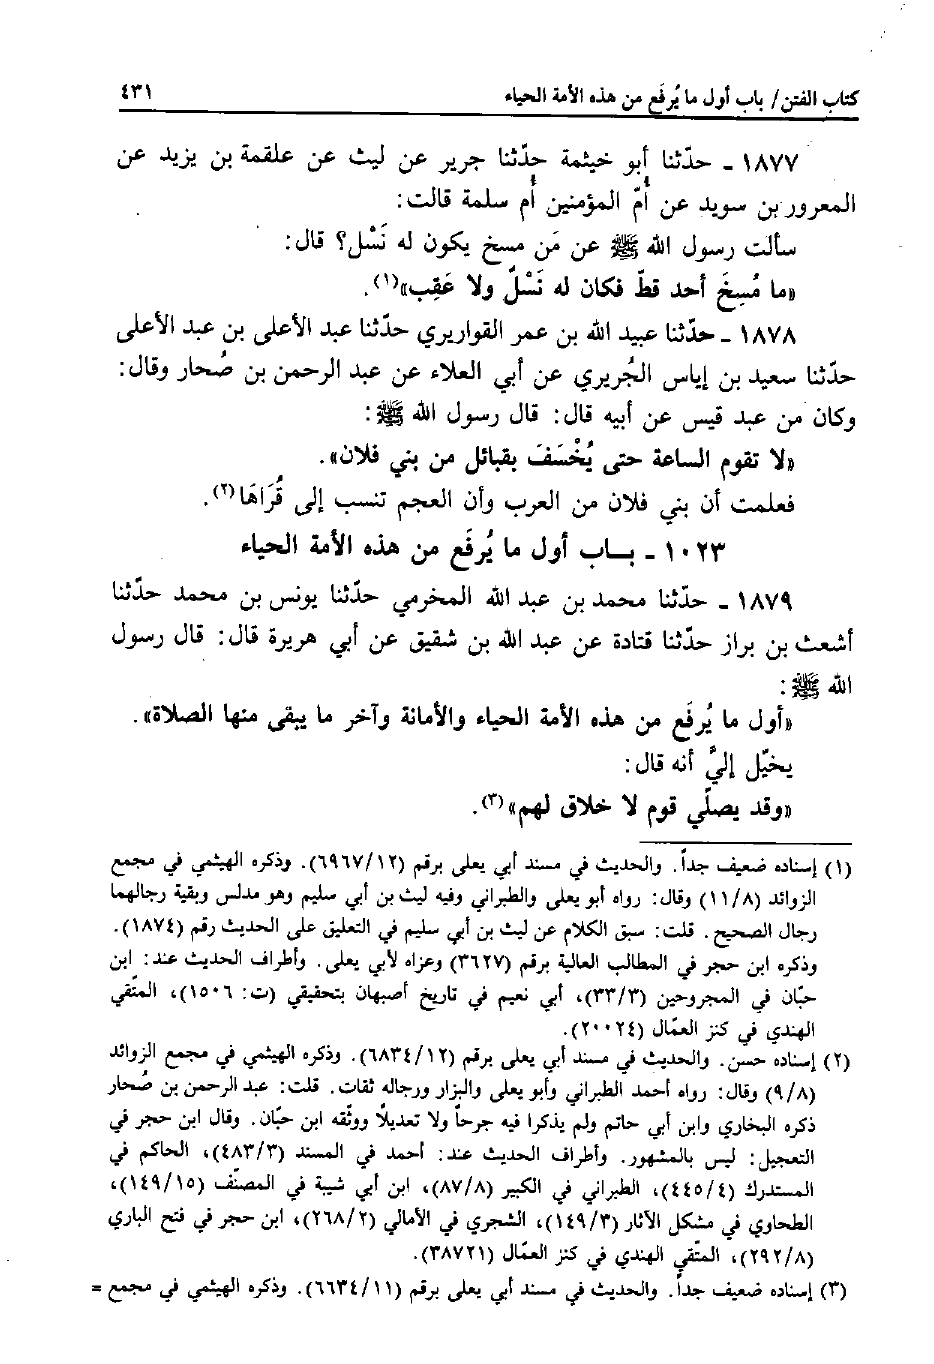 كتاب الفتن/ باب أول ما يُرفَع من هذه الأمة الحياء ٤٣١
١٨٧٧ ـ حدّثنا أبو خيثمة حدّثنا جرير عن ليث عن علقمة بن يزيد عن
المعرور بن سويد عن أمّ المؤمنين أم سلمة قالت:
سألت رسول الله ﷺ عن مَن مسخ يكون له نَسْل؟ قال:
«ما مُسِخَ أحد قطّ فكان له نَسْلٌ ولا عَقِب»(١).
١٨٧٨ ـ حدّثنا عبيد الله بن عمر القواريري حدّثنا عبد الأعلى بن عبد الأعلى
حدّثنا سعيد بن إياس الجُريري عن أبي العلاء عن عبد الرحمن بن صُحار وقال:
وكان من عبد قيس عن أبيه قال: قال رسول الله ﷺ:
«لا تقوم الساعة حتى يُخْسَفَ بقبائل من بني فلان».
فعلمت أن بني فلان من العرب وأن العجم تنسب إلى قُرَاهَا(٢).
١٠٢٣ ـ بـاب أول ما يُرفَع من هذه الأمة الحياء
١٨٧٩ ـ حدّثنا محمد بن عبد الله المخرمي حدّثنا يونس بن محمد حدّثنا
أشعث بن براز حدّثنا قتادة عن عبد الله بن شقيق عن أبي هريرة قال: قال رسول
الله ﷺ:
«أول ما يُرفَع من هذه الأمة الحياء والأمانة وآخر ما يبقى منها الصلاة».
يخيّل إليَّ أنه قال:
«وقد يصلّي قوم لا خلاق لهم»(٣).
(١) إسناده ضعيف جداً. والحديث في مسند أبي يعلى برقم (٦٩٦٧/١٢). وذكره الهيثمي في مجمع
الزوائد (١١/٨) وقال: رواه أبو يعلى والطبراني وفيه ليث بن أبي سليم وهو مدلس وبقية رجالهما
رجال الصحيح. قلت: سبق الكلام عن ليث بن أبي سليم في التعليق على الحديث رقم (١٨٧٤).
وذكره ابن حجر في المطالب العالية برقم (٣٦٢٧) وعزاه لأبي يعلى. وأطراف الحديث عند: ابن
حبّان في المجروحين (٣٣/٣)، أبي نعيم في تاريخ أصبهان بتحقيقي (ت: ١٥٠٦)، المتّقي
الهندي في كنز العمّال (٢٠٠٢٤).
(٢) إسناده حسن. والحديث في مسند أبي يعلى برقم (٦٨٣٤/١٢). وذكره الهيثمي في مجمع الزوائد
(٩/٨) وقال: رواه أحمد الطبراني وأبو يعلى والبزار ورجاله ثقات. قلت: عبد الرحمن بن صُحار
ذكره البخاري وابن أبي حاتم ولم يذكرا فيه جرحاً ولا تعديلاً ووثّقه ابن حبّان. وقال ابن حجر في
التعجيل: ليس بالمشهور. وأطراف الحديث عند: أحمد في المسند (٤٨٣/٣)، الحاكم في
المستدرك (٤٤٥/٤)، الطبراني في الكبير (٨٧/٨)، ابن أبي شيبة في المصنّف (١٤٩/١٥)،
الطحاوي في مشكل الآثار (١٤٩/٣)، الشجري في الأمالي (٢٦٨/٢)، ابن حجر في فتح الباري
(٢٩٢/٨)، المتّقي الهندي في كنز العمّال (٣٨٧٢١).
(٣) إسناده ضعيف جداً. والحديث في مسند أبي يعلى برقم (٦٦٣٤/١١). وذكره الهيثمي في مجمع =